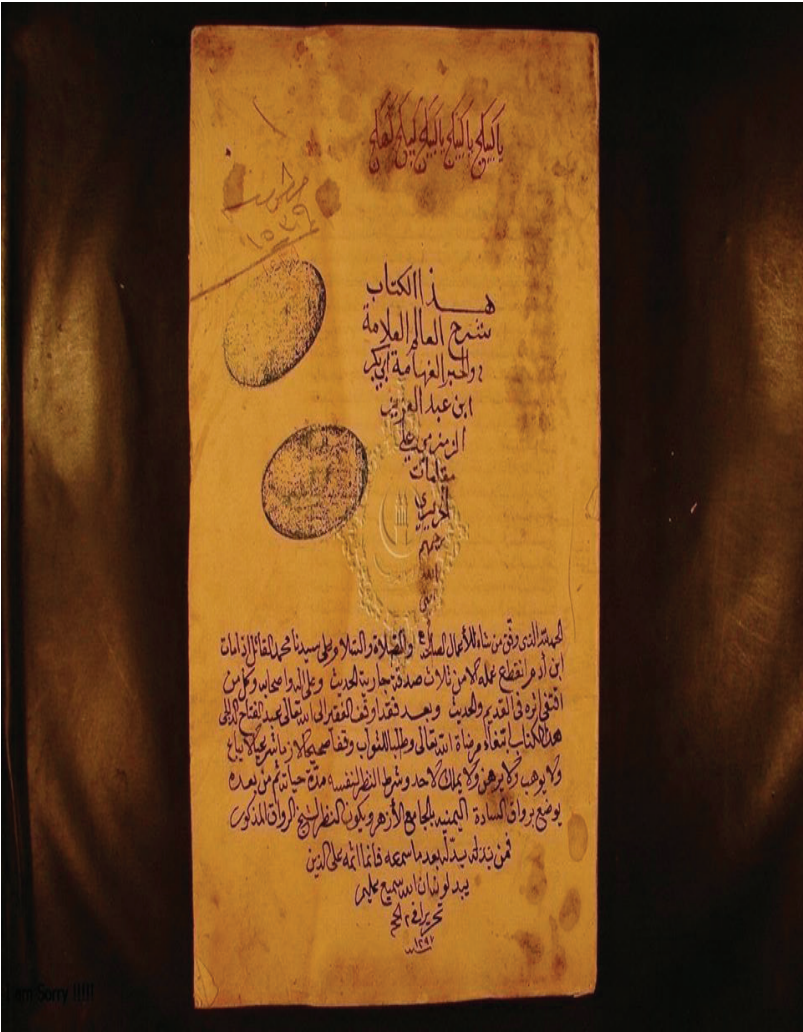 يا كيكج يا كيكج يا كيكج
١٥٢٩
هذا الكتاب
شرح العالم العلامة
والحبر الفهامة ابي بكر
ابن عبد العزيز
الزمزمي على
مقامات
الحريري
رحمهم
الله
الحمد لله الذي وفق من شاء للأعمال الصالحة والصلاة والسلام على سيدنا محمد القائل اذا مات
ابن آدم انقطع عمله الا من ثلاث صدقة جارية الحديث وعلى اله واصحابه وكل من
اقتفى اثره في القديم والحديث وبعد فقد اوقف الفقير الى الله تعالى عبد الفتاح
هذا الكتاب ابتغاء مرضاة الله تعالى وطلبا للثواب وقفا صحيحا لازما شرعيا لا يباع
ولا يوهب ولا يرهن ولا يملك لاحد وشرط النظر لنفسه مدة حياته ثم من بعده
يوضع برواق السادة اليمنيه بالجامع الأزهر ويكون النظر لشيخ الرواق المذكور
فمن بدله بعد ما سمعه فانما اثمه على الذين
يبدلونه ان الله سميع عليم
تحريرا في
١٢٩٧
I am Sorry !!!!!